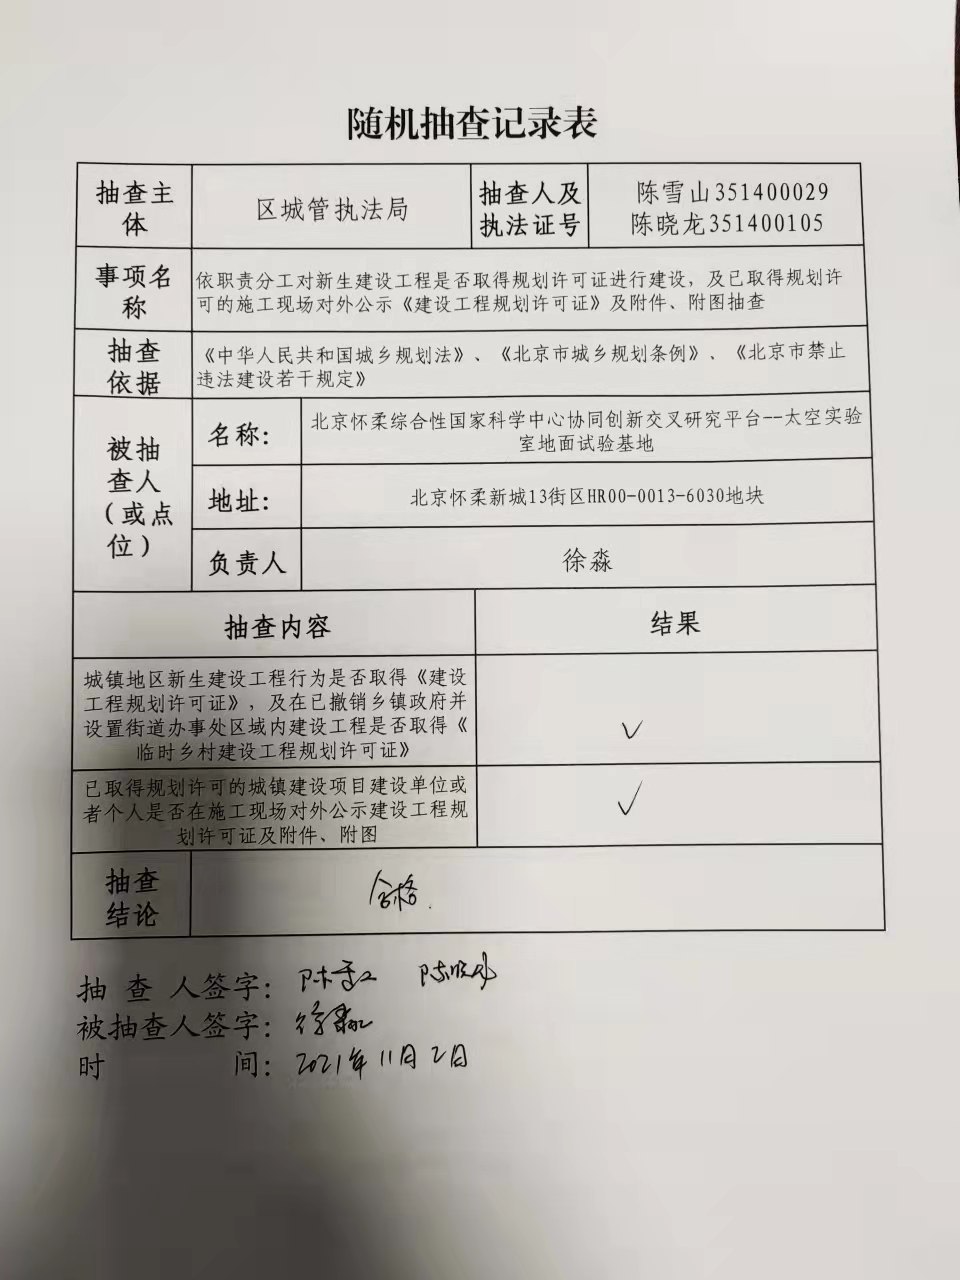 随机抽查记录表
抽查主
体
区城管执法局
抽查人及
执法证号
陈雪山351400029
陈晓龙351400105
事项名
称
依职责分工对新生建设工程是否取得规划许可证进行建设，及已取得规划许
可的施工现场对外公示《建设工程规划许可证》及附件、附图抽查
抽查
依据
《中华人民共和国城乡规划法》、《北京市城乡规划条例》、《北京市禁止
违法建设若干规定》
被抽
查人
（或点
位）
名称：
北京怀柔综合性国家科学中心协同创新交叉研究平台--太空实验
室地面试验基地
地址：
北京怀柔新城13街区HR00-0013-6030地块
负责人
徐淼
抽查内容
结果
城镇地区新生建设工程行为是否取得《建设
工程规划许可证》，及在已撤销乡镇政府并
设置街道办事处区域内建设工程是否取得《
临时乡村建设工程规划许可证》
✓
已取得规划许可的城镇建设项目建设单位或
者个人是否在施工现场对外公示建设工程规
划许可证及附件、附图
✓
抽查
结论
合格.
抽 查 人签字：陈雪山 陈晓龙
被抽查人签字：徐淼
时 间：2021年11月2日